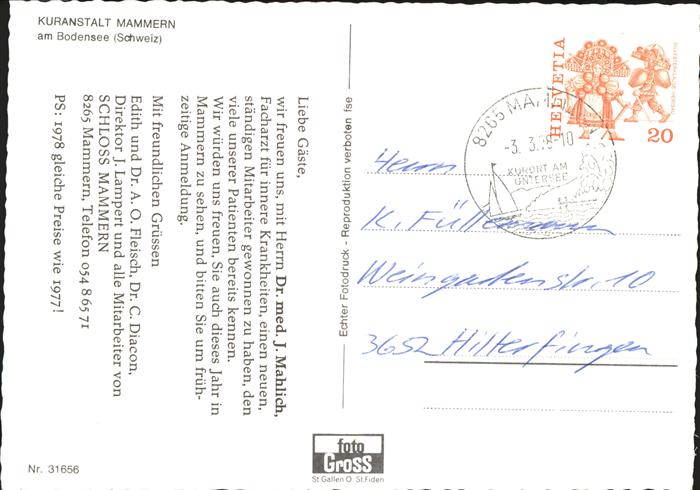 KURANSTALT MAMMERN
am Bodensee (Schweiz)
Liebe Gäste,
wir freuen uns, mit Herrn Dr. med. J. Mahlich,
Facharzt für innere Krankheiten, einen neuen,
ständigen Mitarbeiter gewonnen zu haben, den
viele unserer Patienten bereits kennen.
Wir würden uns freuen, Sie auch dieses Jahr in
Mammern zu sehen, und bitten Sie um früh-
zeitige Anmeldung.
Mit freundlichen Grüssen
Edith und Dr. A. O. Fleisch, Dr. C. Diacon,
Direktor J. Lampert und alle Mitarbeiter von
SCHLOSS MAMMERN
8265 Mammern, Telefon 054 8 65 71
PS: 1978 gleiche Preise wie 1977!
Nr. 31656
Echter Fotodruck - Reproduktion verboten fse
foto
GROSS
St Gallen O St.Fiden
HELVETIA
20
8265
-3. 3.78-10
KURORT AM
UNTERSEE
Herrn
K.
Weingartenstr. 10
3652 Hilterfingen